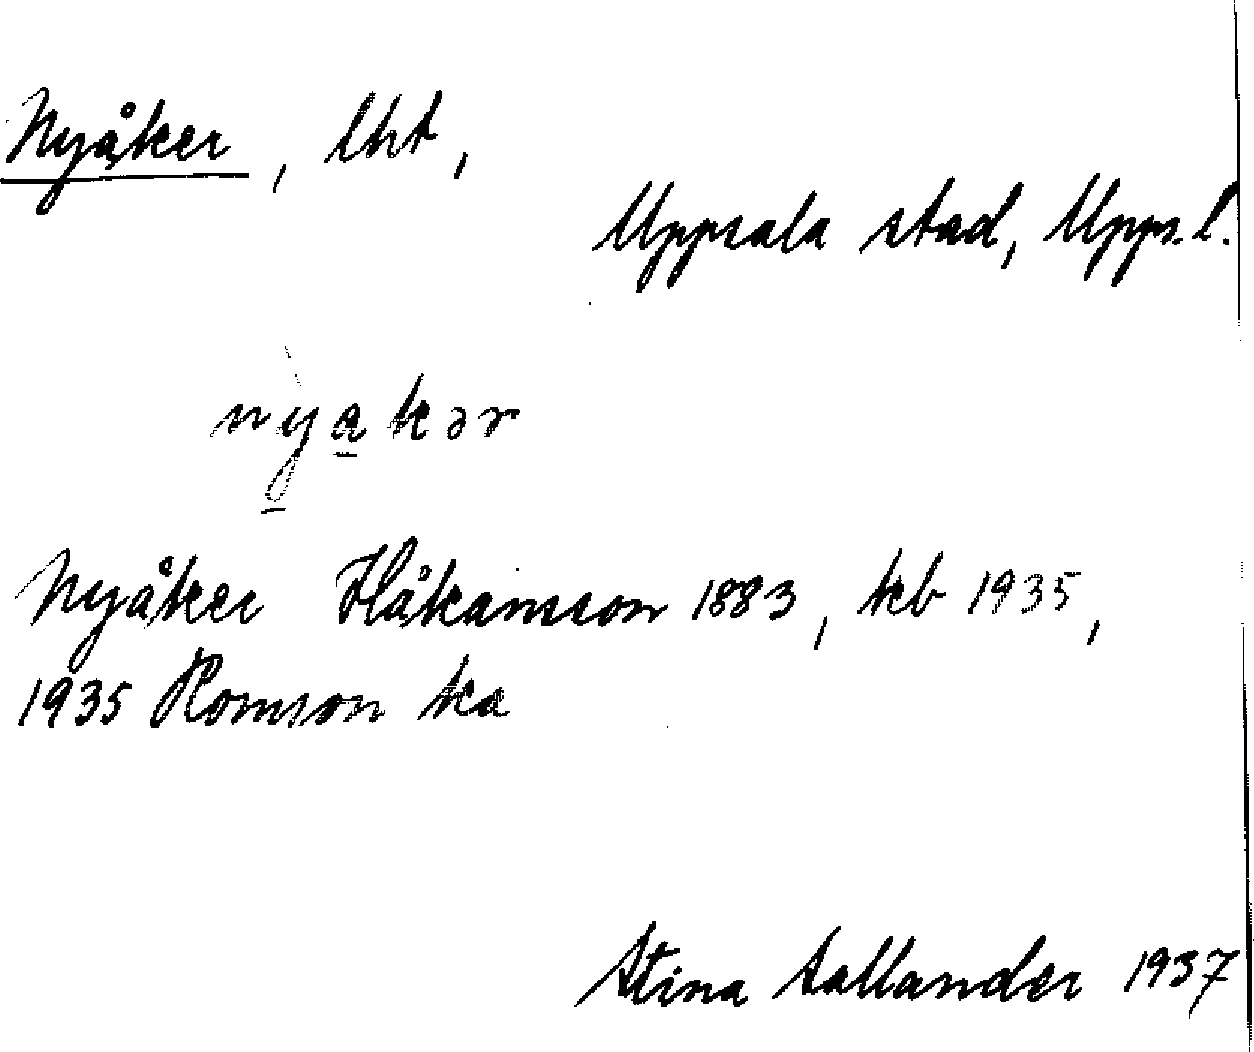 Nyåker, lht,
Uppsala stad, Uppl.
nyakər
Nyåker Håkansson 1883, kb 1935,
1935 Romson ka
Stina Sallander 1937